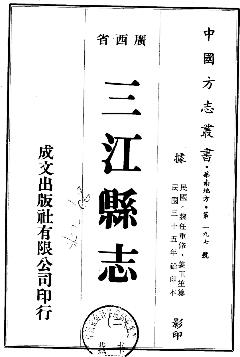 中國方志叢書・華南地方・第一九七號
據民國・魏任重修・姜玉笙纂
民國三十五年鉛印本
影印
廣西省
三江縣志
成文出版社有限公司印行